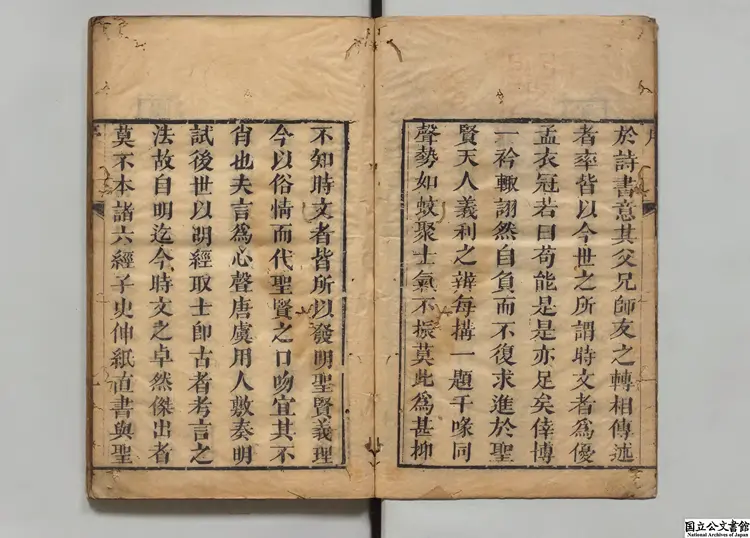 序
於詩書意其父兄師友之轉相傳述
者率皆以今世之所謂時文者爲優
孟衣冠若曰苟能是是亦足矣倖博
一衿輙詡然自負而不復求進於聖
賢天人義利之辨每搆一題千喙同
聲勢如蚊聚士氣不振莫此爲甚抑
不知時文者皆所以發明聖賢義理
今以俗情而代聖賢之口吻宜其不
肖也夫言爲心聲唐虞用人敷奏明
試後世以明經取士卽古者考言之
法故自明迄今時文之卓然傑出者
莫不本諸六經子史伸紙直書與聖
国立公文書館
National Archives of Japan